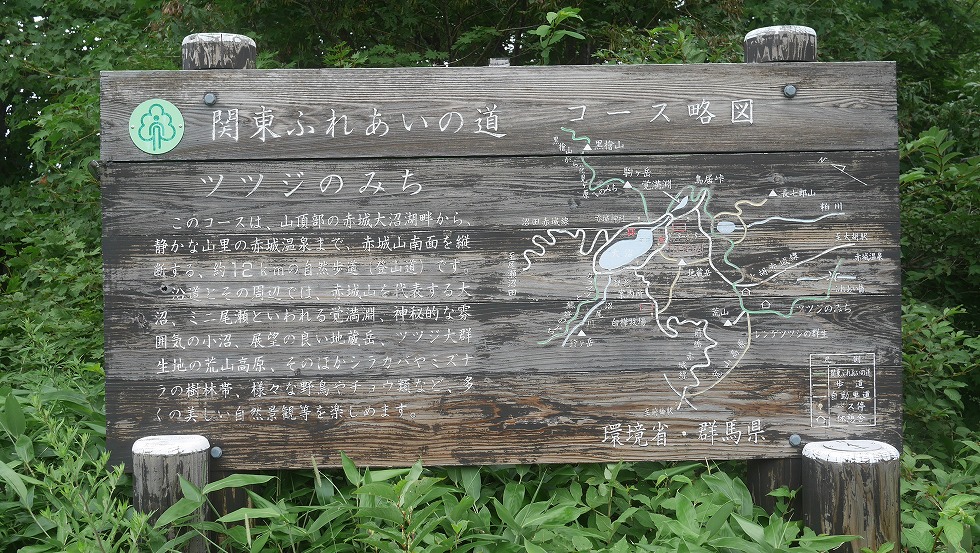 関東ふれあいの道
コース略図
ツツジのみち
このコースは、山頂部の赤城大沼湖畔から、
静かな山里の赤城温泉まで、赤城山南面を縦
断する、約12kmの自然歩道(登山道)です。
沿道とその周辺では、赤城山を代表する大
沼、ミニ尾瀬といわれる覚満淵、神秘的な雰
囲気の小沼、展望の良い地蔵岳、ツツジ大群
生地の荒山高原、そのほかシラカバやミズナ
ラの樹林帯、様々な野鳥やチョウ類など、多
くの美しい自然景観等を楽しめます。
黒檜山
駒ヶ岳
覚満淵
鳥居峠
長七郎山
粕川
沼田赤城線
赤城神社
地蔵岳
赤城温泉
荒山
ツツジのみち
レンゲツツジの群生
白樺牧場
鈴ヶ岳
凡例
関東ふれあいの道
歩道
自動車道
バス停
環境省・群馬県